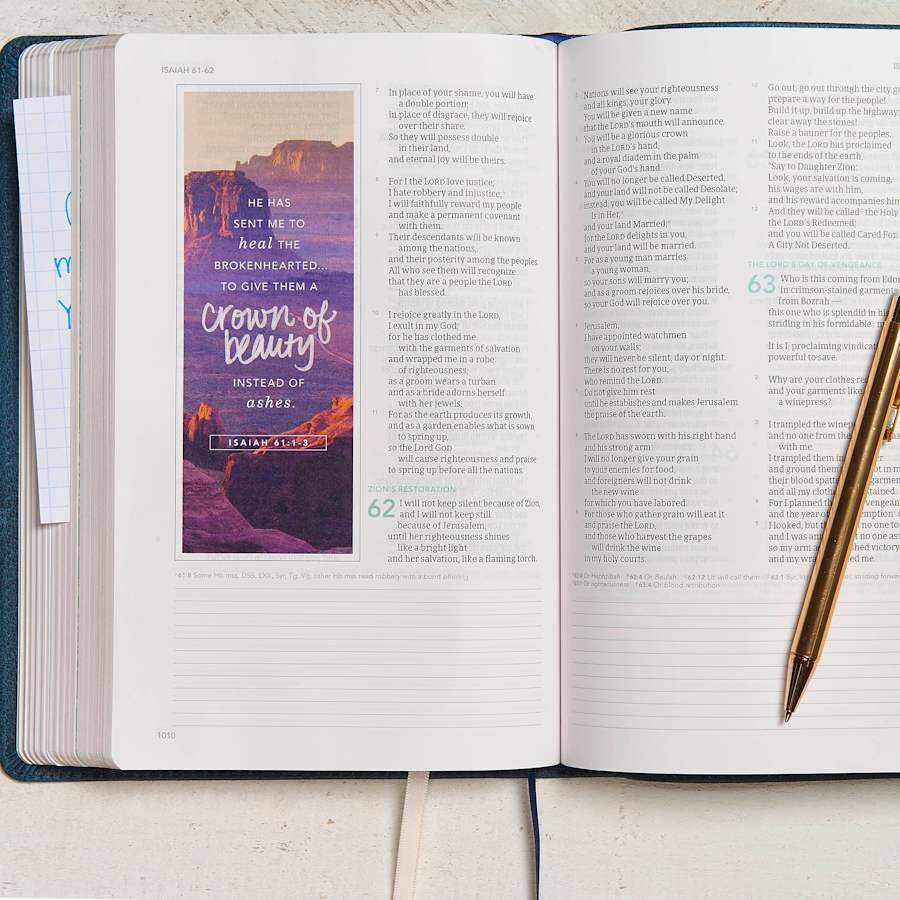 ISAIAH 61-62
HE HAS
SENT ME TO
heal THE
BROKENHEARTED...
TO GIVE THEM A
Crown of
beauty
INSTEAD OF
ashes.
ISAIAH 61:1-3
7 In place of your shame, you will have
a double portion;
in place of disgrace, they will rejoice
over their share.
So they will possess double
in their land,
and eternal joy will be theirs.
8 For I the LORD love justice;
I hate robbery and injustice;
I will faithfully reward my people
and make a permanent covenant
with them.
9 Their descendants will be known
among the nations,
and their posterity among the peoples.
All who see them will recognize
that they are a people the LORD
has blessed.
10 I rejoice greatly in the LORD,
I exult in my God;
for he has clothed me
with the garments of salvation
and wrapped me in a robe
of righteousness,
as a groom wears a turban
and as a bride adorns herself
with her jewels.
11 For as the earth produces its growth,
and as a garden enables what is sown
to spring up,
so the Lord GOD
will cause righteousness and praise
to spring up before all the nations.
ZION'S RESTORATION
62 I will not keep silent because of Zion,
and I will not keep still
because of Jerusalem,
until her righteousness shines
like a bright light
and her salvation, like a flaming torch.
61:8 Some Hb mss, DSS, LXX, Syr, Tg, Vg; other Hb mss read robbery with a burnt offering
1010
Nations will see your righteousness
and all kings, your glory.
You will be given a new name
that the LORD's mouth will announce.
You will be a glorious crown
in the LORD's hand,
and a royal diadem in the palm
of your God's hand.
You will no longer be called Deserted,
and your land will not be called Desolate;
instead, you will be called My Delight
Is in Her,
and your land Married;
for the LORD delights in you,
and your land will be married.
For as a young man marries
a young woman,
so your sons will marry you;
and as a groom rejoices over his bride,
so your God will rejoice over you.
Jerusalem,
I have appointed watchmen
on your walls;
they will never be silent, day or night.
There is no rest for you,
who remind the LORD.
Do not give him rest
until he establishes and makes Jerusalem
the praise of the earth.
The LORD has sworn with his right hand
and his strong arm:
I will no longer give your grain
to your enemies for food,
and foreigners will not drink
the new wine
for which you have labored.
For those who gather grain will eat it
and praise the LORD,
and those who harvest the grapes
will drink the wine
in my holy courts.
10 Go out, go out through the city
prepare a way for the people!
Build it up, build up the highway;
clear away the stones!
Raise a banner for the peoples.
11 Look, the LORD has proclaimed
to the ends of the earth,
"Say to Daughter Zion:
Look, your salvation is coming,
his wages are with him,
and his reward accompanies him
12 And they will be called the Holy
the LORD's Redeemed;
and you will be called Cared For,
A City Not Deserted.
THE LORD'S DAY OF VENGEANCE
63 Who is this coming from
in crimson-stained garments
from Bozrah —
this one who is splendid in
striding in his formidable
It is I, proclaiming
powerful to save.
2 Why are your clothes
and your garments like
a winepress?
3 I trampled the
and no one from the
with me.
I trampled them in
and ground them
their blood
and all my
4 For I planned
and the year of
5 I looked, but
and I was
so my arm
and my
62:4 Or Hephzibah 62:4 Or Beulah 62:12 Lit will call them
Or righteousness 63:4 Or blood retribution